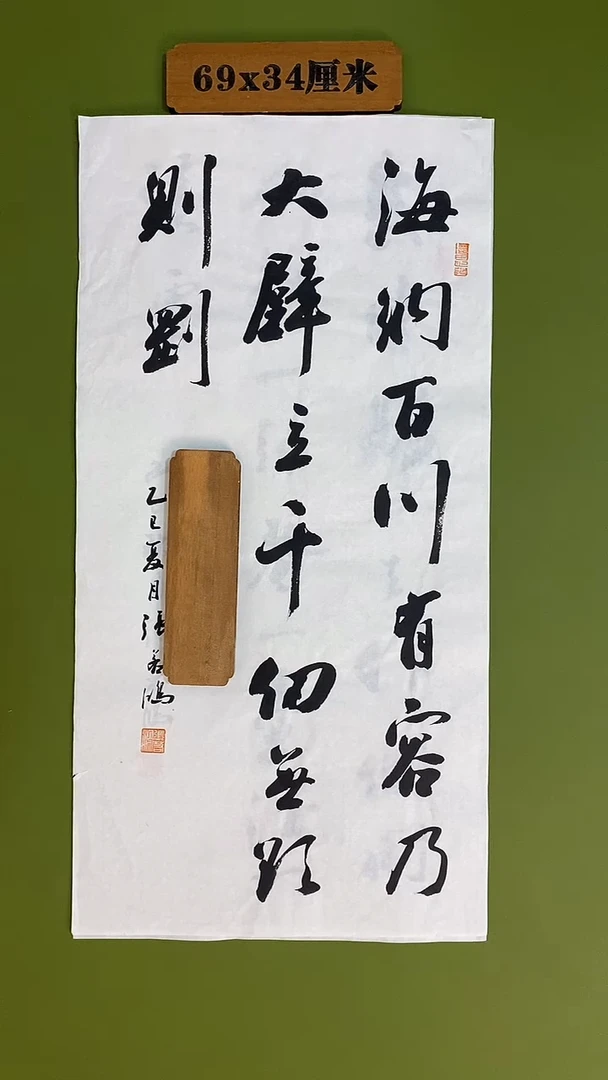 69x34厘米
海納百川有容乃
大壁立千仞無欲
則剛
乙巳夏月張鴻